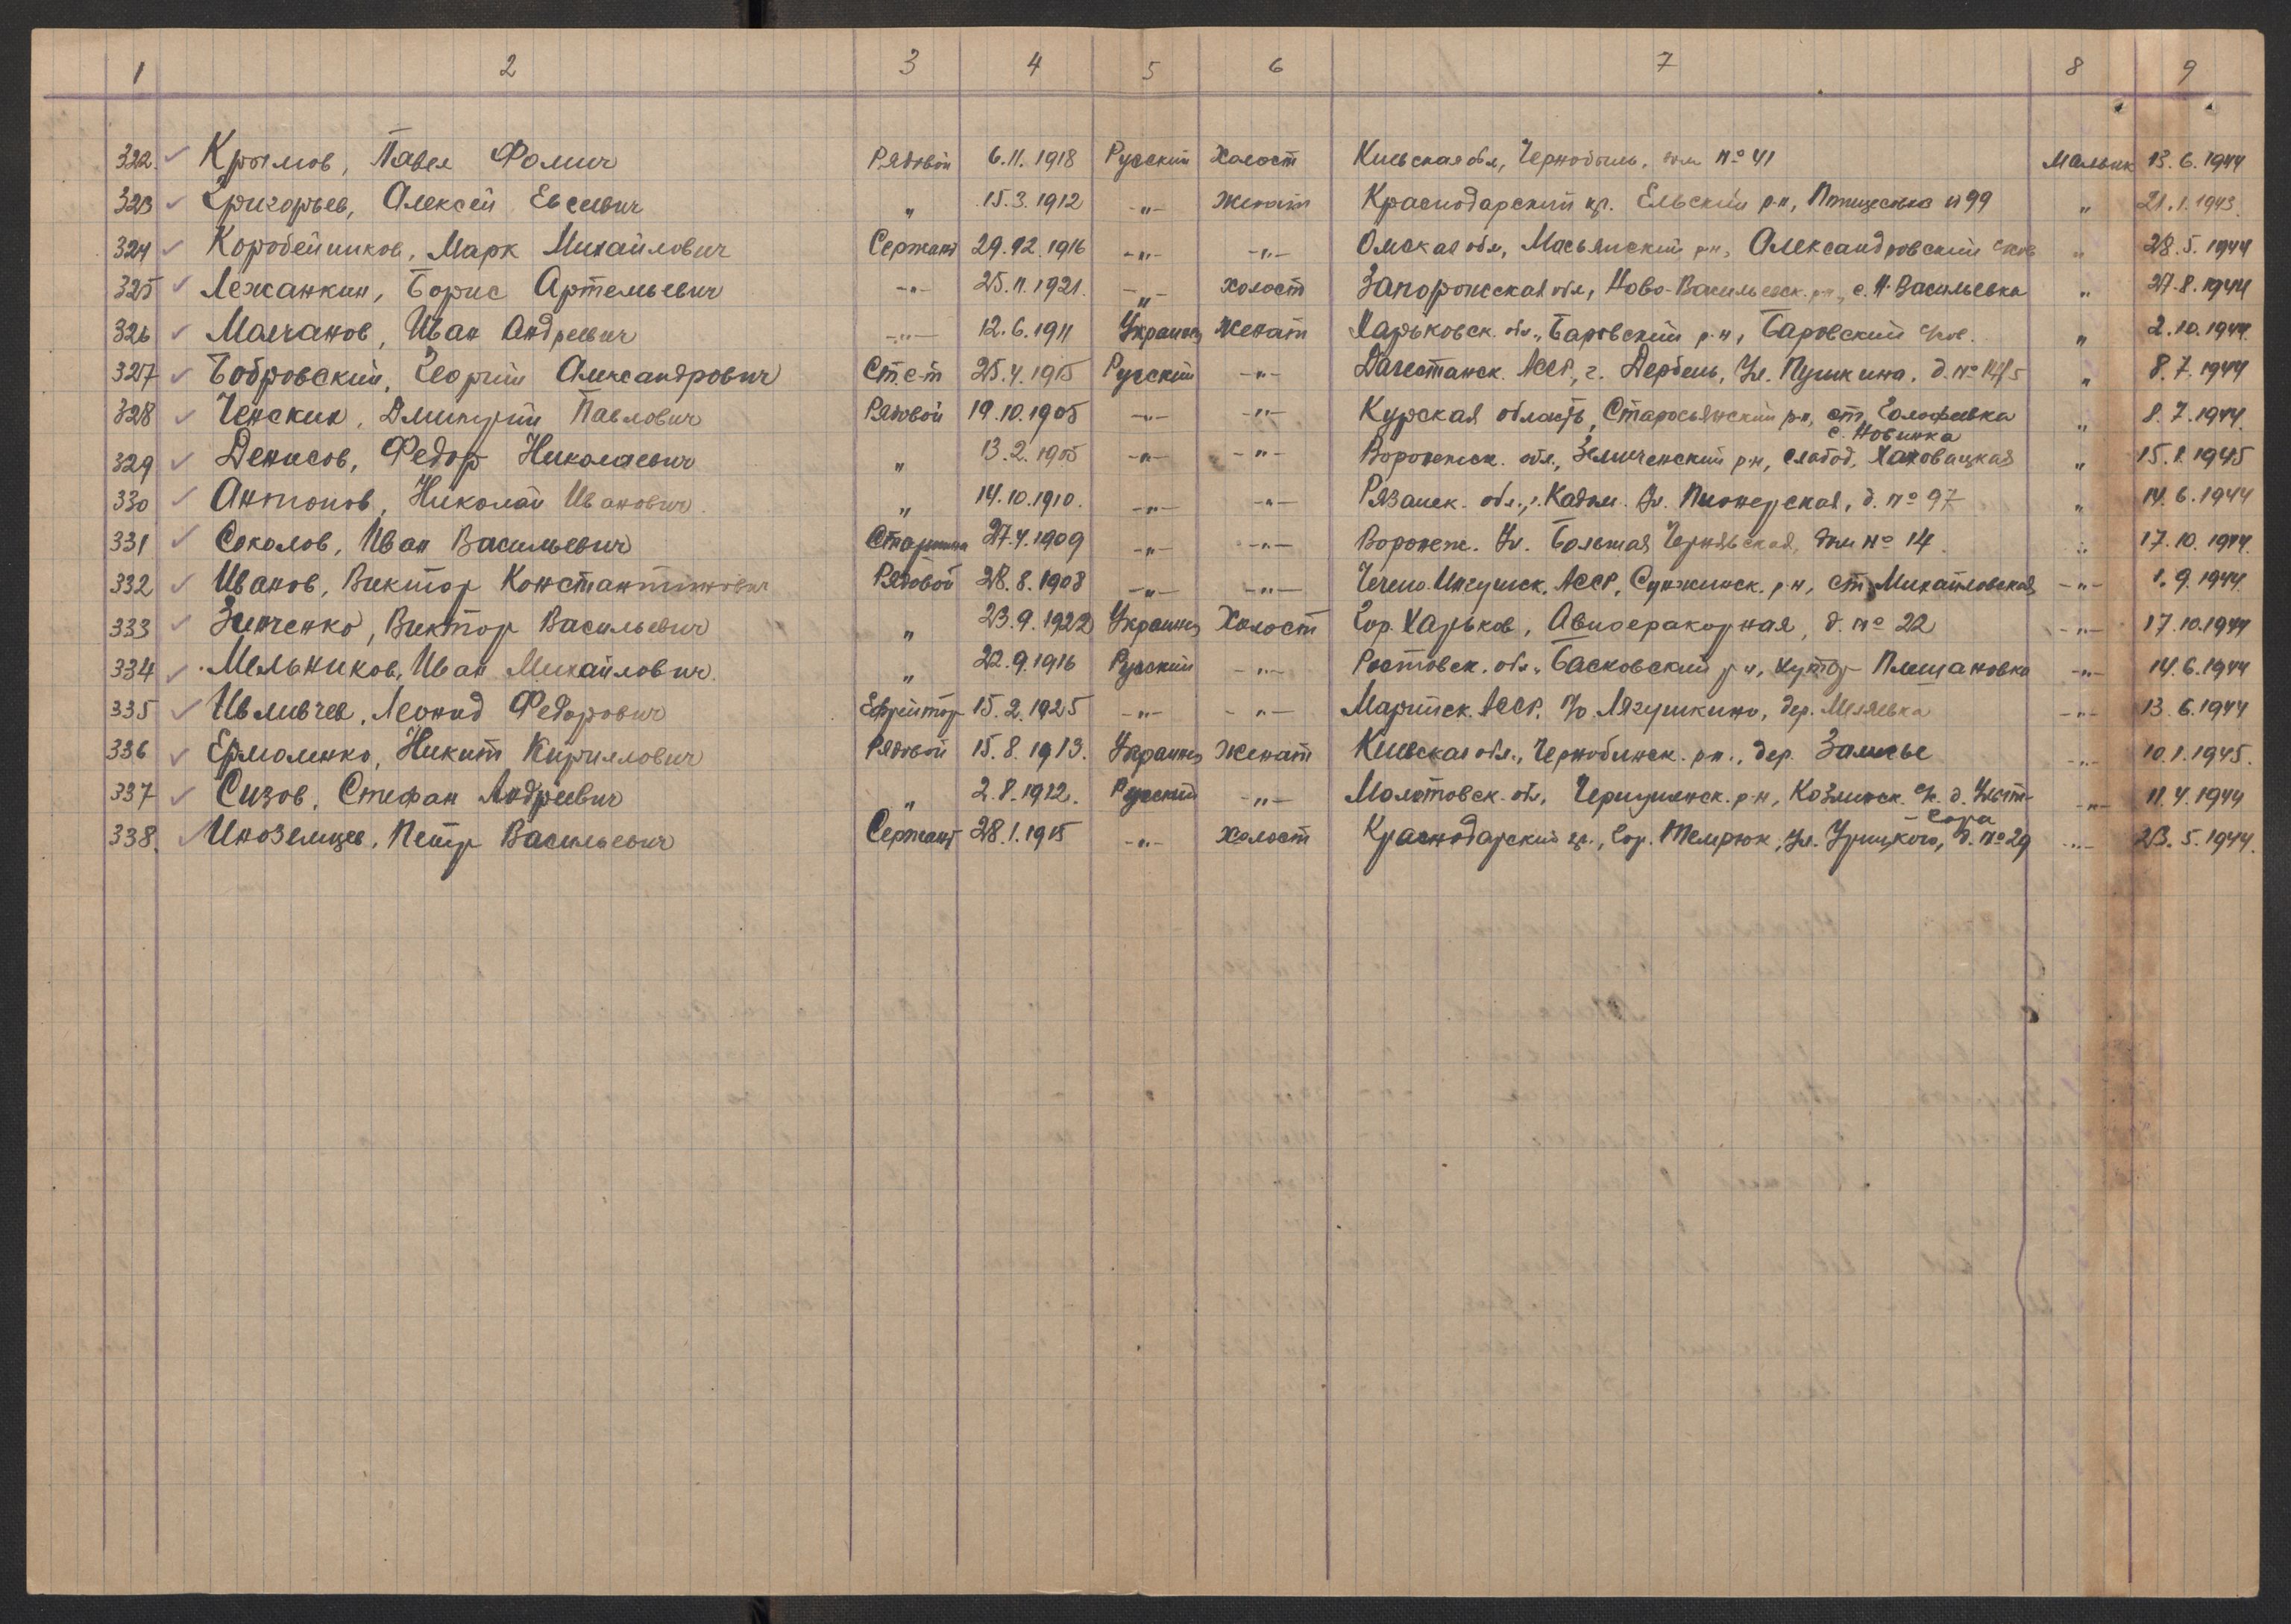 1 2 3 4 5 6 7 8 9
322. ✓ Крымов, Павел Фомич Рядовой 6.11.1918 Русский Холост Киевская обл, Чернобыль, дом № 41 Мальмк 13.6.1944
323 ✓ Григорьев, Алексей Евсеевич " 15.3.1912 -"- Женат Краснодарский кр. Ельский р-н, № 99 " 21.1.1943.
324 ✓ Коробейников, Марк Михайлович Сержант 29.12.1916 -"- -"- Омская обл, Масьянский рн, Александровский с/сов " 28.5.1944
325 ✓ Лежанкин, Борис Артемьевич -"- 25.11.1921. -"- холост Запорожская обл, Ново-Васильевск. р-н, с. Н-Васильевка " 27.8.1944
326 ✓ Малчанов, Иван Андреевич -"- 12.6.1911 Украинец Женат Харьковск. обл., Баровский р-н, Баровский с/сов. " 2.10.1944.
327 ✓ Бобровский, Георгий Александрович Ст. с-т 25.4.1915 Русский -"- Дагестанск. АССР, г. Дербень, Ул. Пушкина, д. № 14/5 " 8.7.1944
328 ✓ Ченских, Дмитрий Павлович Рядовой 19.10.1905 -"- -"- Курская область, р-н, ст. Голофеевка " 8.7.1944.
с. Новинка
329 ✓ Денисов, Федор Николаевич " 13.2.1905 -"- -"- Воронежск. обл., рн, слобод. " 15.1.1945
330 ✓ Антонов, Николай Иванович. " 14.10.1910. -"- -"- Рязанск. обл., г. Кадом. Ул. Пионерская, д. № 97 " 14.6.1944
331 ✓ Соколов, Иван Васильевич Старшина 27.4.1909 -"- -"- Воронеж. Ул. Большая дом № 14. " 17.10.1944.
332 ✓ Иванов, Виктор Константинович Рядовой 28.8.1908 -"- -"- Чечено-Ингушск. АССР, Сунженск. р-н, ст. Михайловская -"- 1.9.1944.
333 ✓ Зинченко, Виктор Васильевич " 23.9.1922 Украинец Холост Гор. Харьков, д. № 22 -"- 17.10.1944
334 ✓ Мельников, Иван Михайлович. " 22.9.1916 Русский -"- Ростовск. обл. Басковский р-н, хутор Плешановка -"- 14.6.1944
335 ✓ Ивливчев, Леонид Федорович Ефрейтор 15.2.1925 -"- -"- Марийск. АССР, п/о Лягушкино, дер. -"- 13.6.1944
336 ✓ Ермоленко, Никит Кириллович Рядовой 15.8.1913. Украинец Женат Киевская обл., Чернобинск. рн., дер. Залесье -"- 10.1.1945.
337 ✓ Сизов, Стефан Андреевич " 2.8.1912. Русский -"- Молотовск. обл, р-н, Козминск. с/с. д. Усть- -"- 11.4.1944
-Гора
338. ✓ Иноземцев, Петр Васильевич Сержант 28.1.1915 -"- холост Краснодарский кр., Гор. Темрюк, Ул. Урицкого, д. № 29 -"- 23.5.1944.